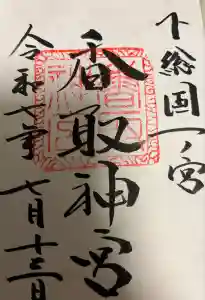 下総国一ノ宮
香取神宮
令和七年
七月十三日